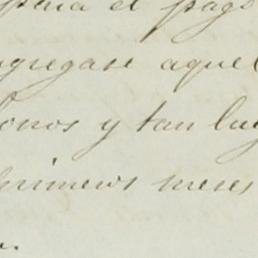 para el pago
gregase aquel
onos y tan lug
primeros meses